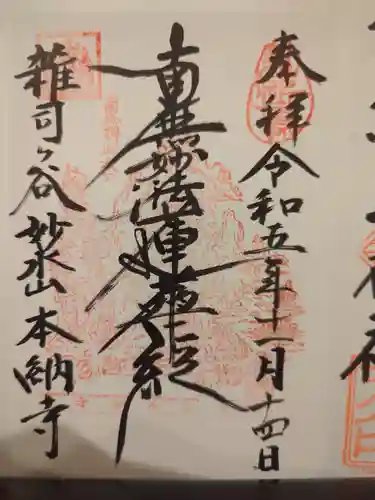 奉拝
令和五年十一月十四日
南無妙法蓮華経
雑司ヶ谷 妙永山 本納寺